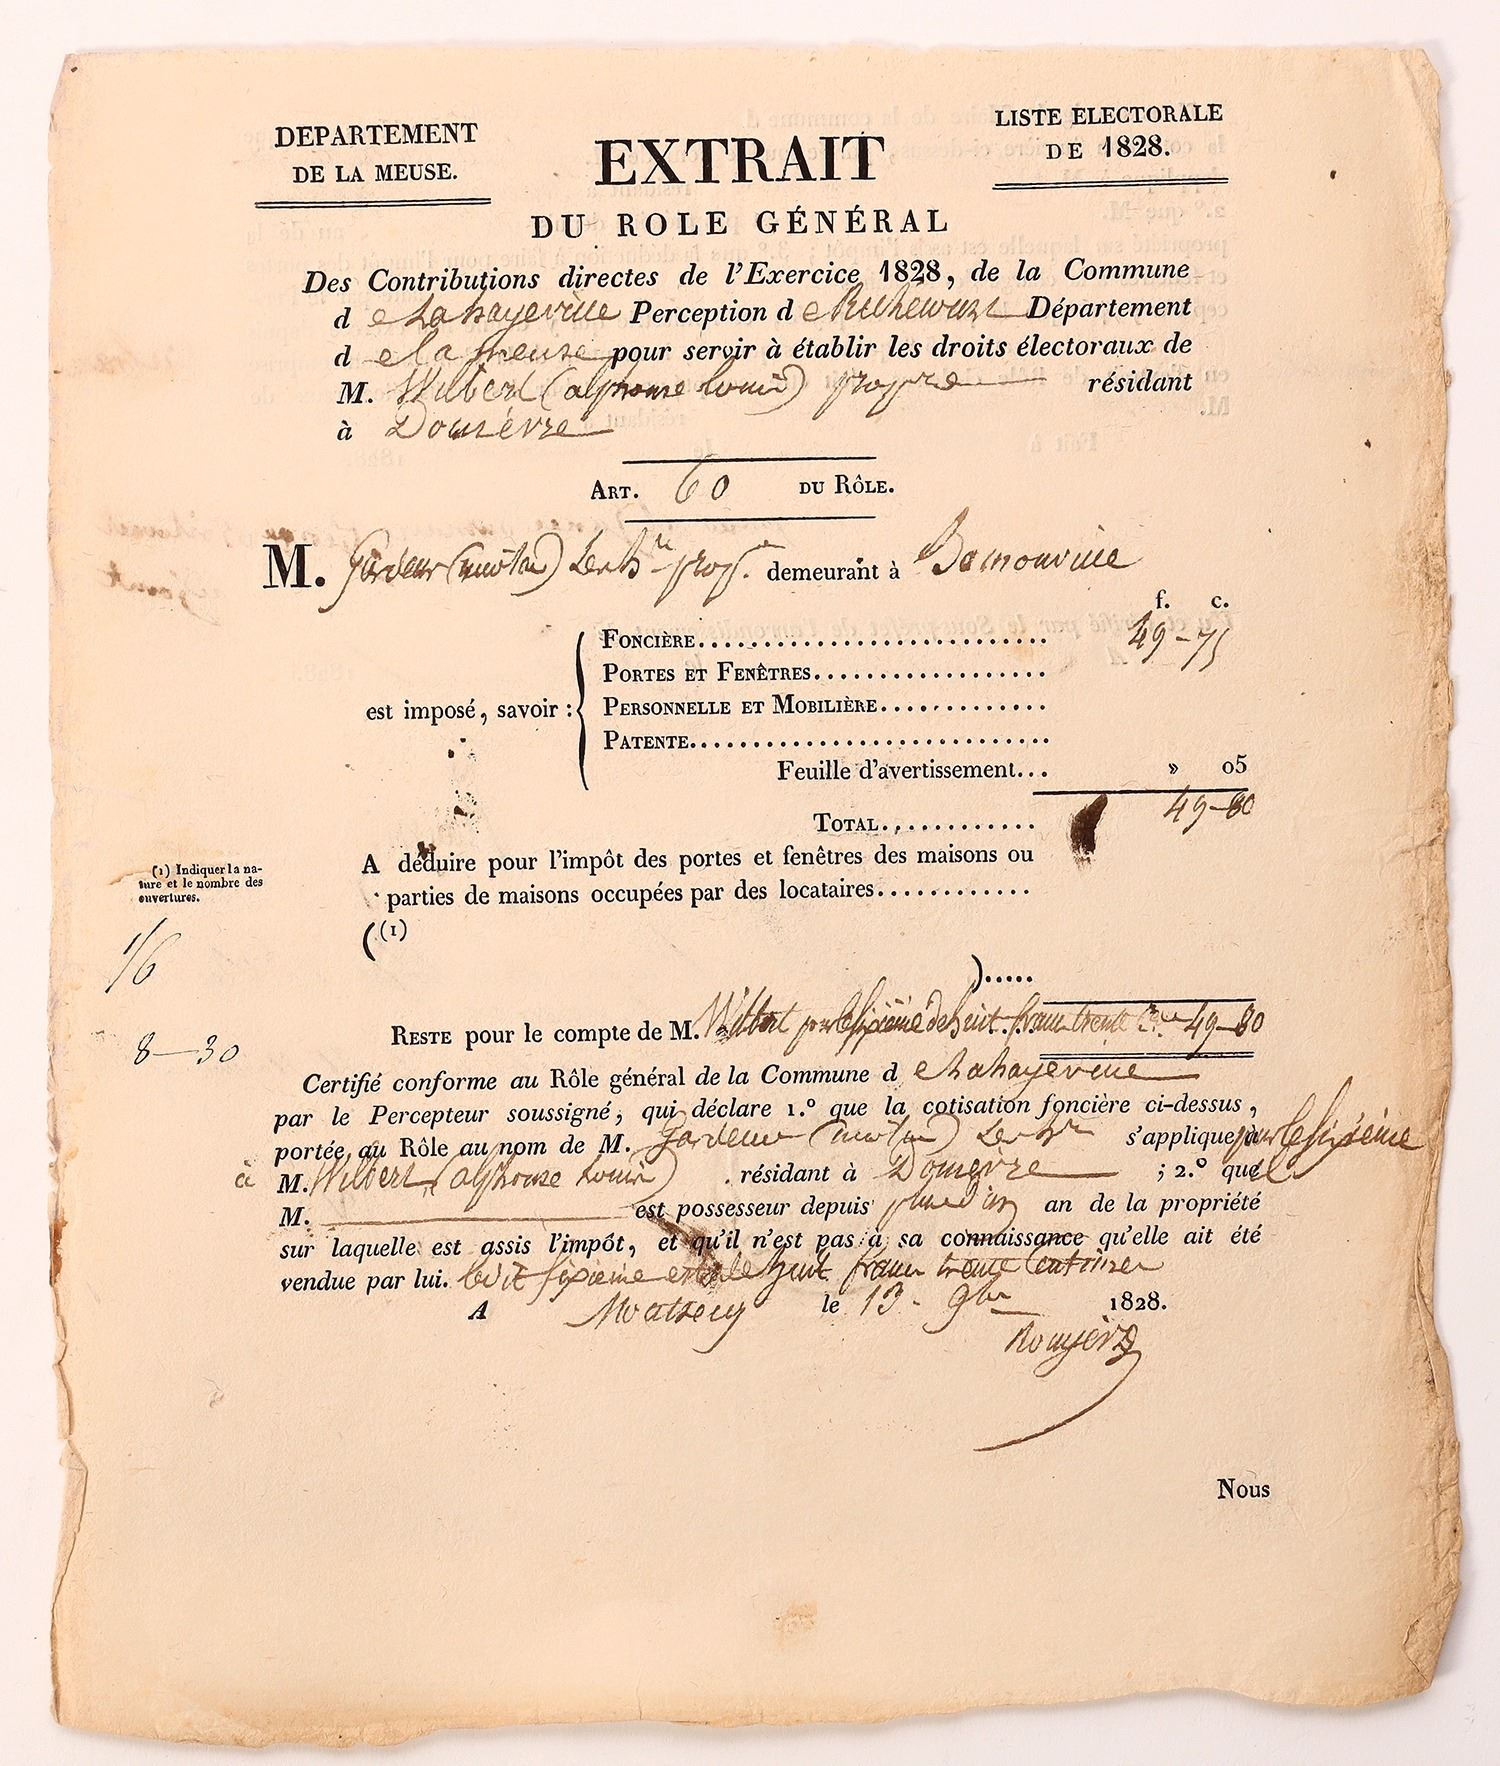 DEPARTEMENT
DE LA MEUSE.
LISTE ELECTORALE
DE 1828.
EXTRAIT
DU ROLE GÉNÉRAL
Des Contributions directes de l'Exercice 1828, de la Commune
d e Lahayeville Perception d e Richecourt Département
d e la Meuse pour servir à établir les droits électoraux de
M. Wilbert (alphonse Louis) propre résidant
à Domèvre
ART. 60 DU RÔLE.
M. Gardeur demeurant à
f. c.
est imposé, savoir :
FONCIÈRE............................ 49-75
PORTES ET FENÊTRES..................
PERSONNELLE ET MOBILIÈRE.............
PATENTE.............................
Feuille d'avertissement... » 05
TOTAL............. 49-80
A déduire pour l'impôt des portes et fenêtres des maisons ou
parties de maisons occupées par des locataires............
(1) Indiquer la na-
ture et le nombre des
ouvertures.
((1)
1/6
).....
RESTE pour le compte de M. Wilbert pour le sixième de huit francs trente 49-80
8-30
Certifié conforme au Rôle général de la Commune d e Lahayeville
par le Percepteur soussigné, qui déclare 1.º que la cotisation foncière ci-dessus,
portée au Rôle au nom de M. Gardeur s'applique pour le sixième
à M. Wilbert (alphonse Louis) résidant à Domèvre ; 2.º que
M. est possesseur depuis plus d'un an de la propriété
sur laquelle est assis l'impôt, et qu'il n'est pas à sa connaissance qu'elle ait été
vendue par lui. sixième est de huit francs trente Centimes
A le 13 9bre 1828.
Nous